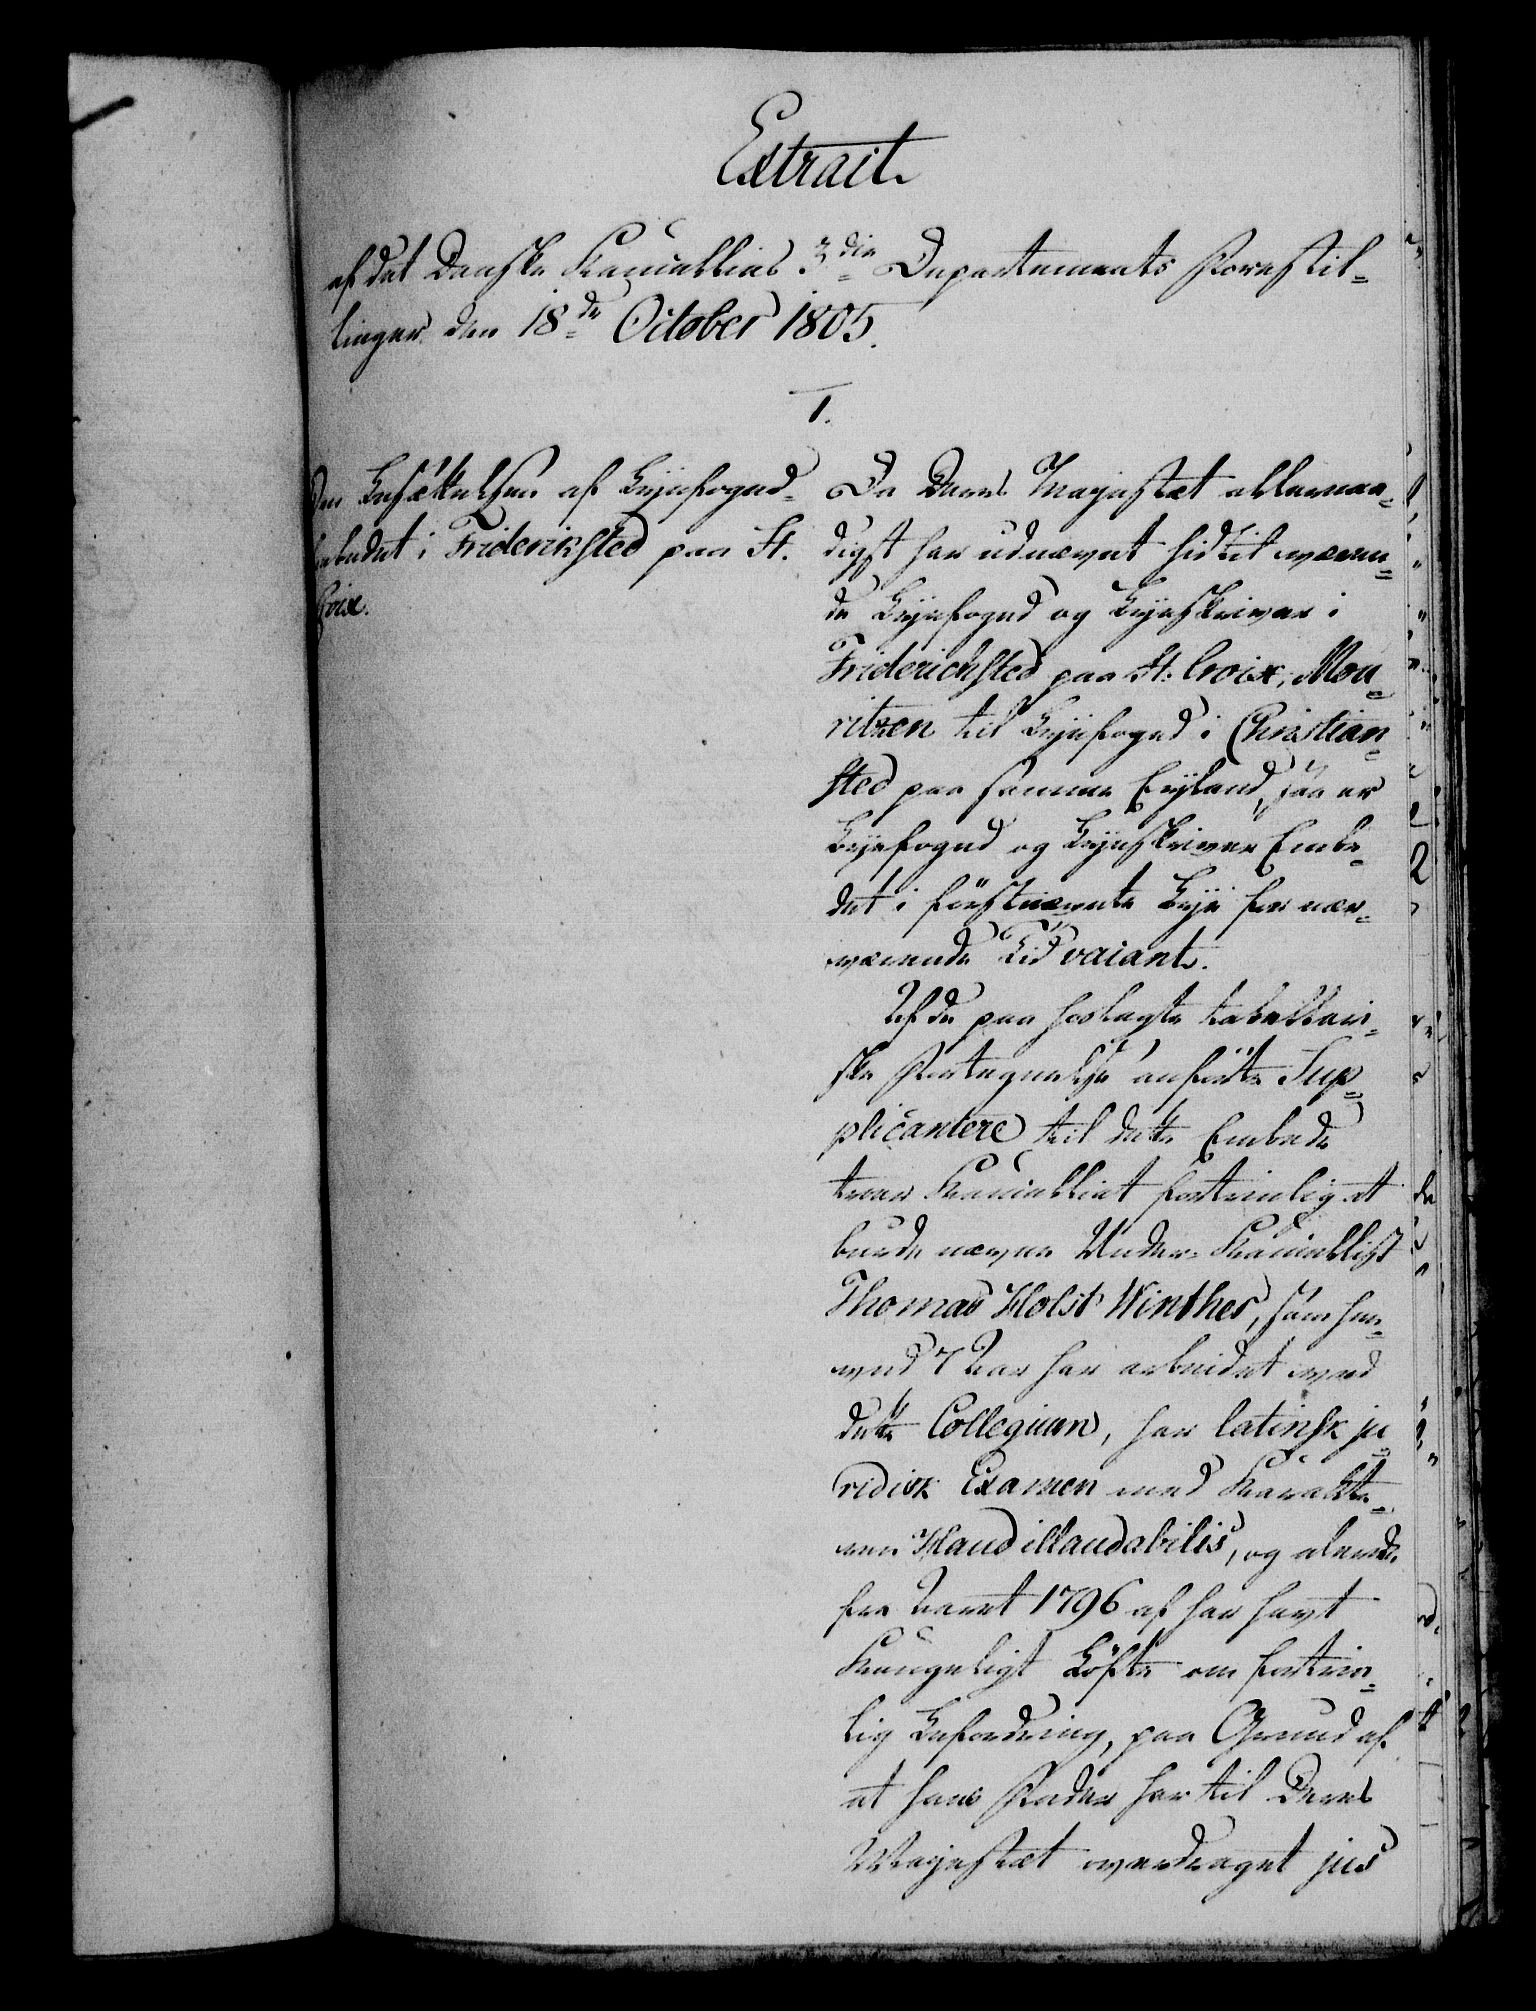 Extrait
af det Danske Kancellies 3die Departements Forestil-
linger den 18de October 1805.
1.
Om Besættelsen af Byefoged-
embedet i Frideriksted paa St.
Croix.
Da Deres Majestæt allernaa-
digst har udnævnt hidtil væren-
de Byefoged og Byeskriver i
Friderichsted paa St. Croix, Mou-
ritzen til Byefoged i Christian-
sted paa samme Eyland, saa er
Byefoged og Byeskriver Embe-
det i førstnævnte Bye for nær-
værende Tid vacant.
Af de paa hoslagte tabellari-
ske Fortegnelse anførte Sup-
plicantere til dette Embede
troer Kancelliet fortrinlig at
burde nævne Under-Kancellist
Thomas Holst Winther, som hen-
ved 7 Aar har arbeidet ved
dette Collegium, har latinsk ju-
ridisk Examen med Karakte-
ren Haud illaudabilis, og alerede
fra Aaret 1796 af har havt
Kongeligt Løfte om fortrin-
lig Befordring, paa Grund af
at hans Fader har til Deres
Majestæt overdraget jus